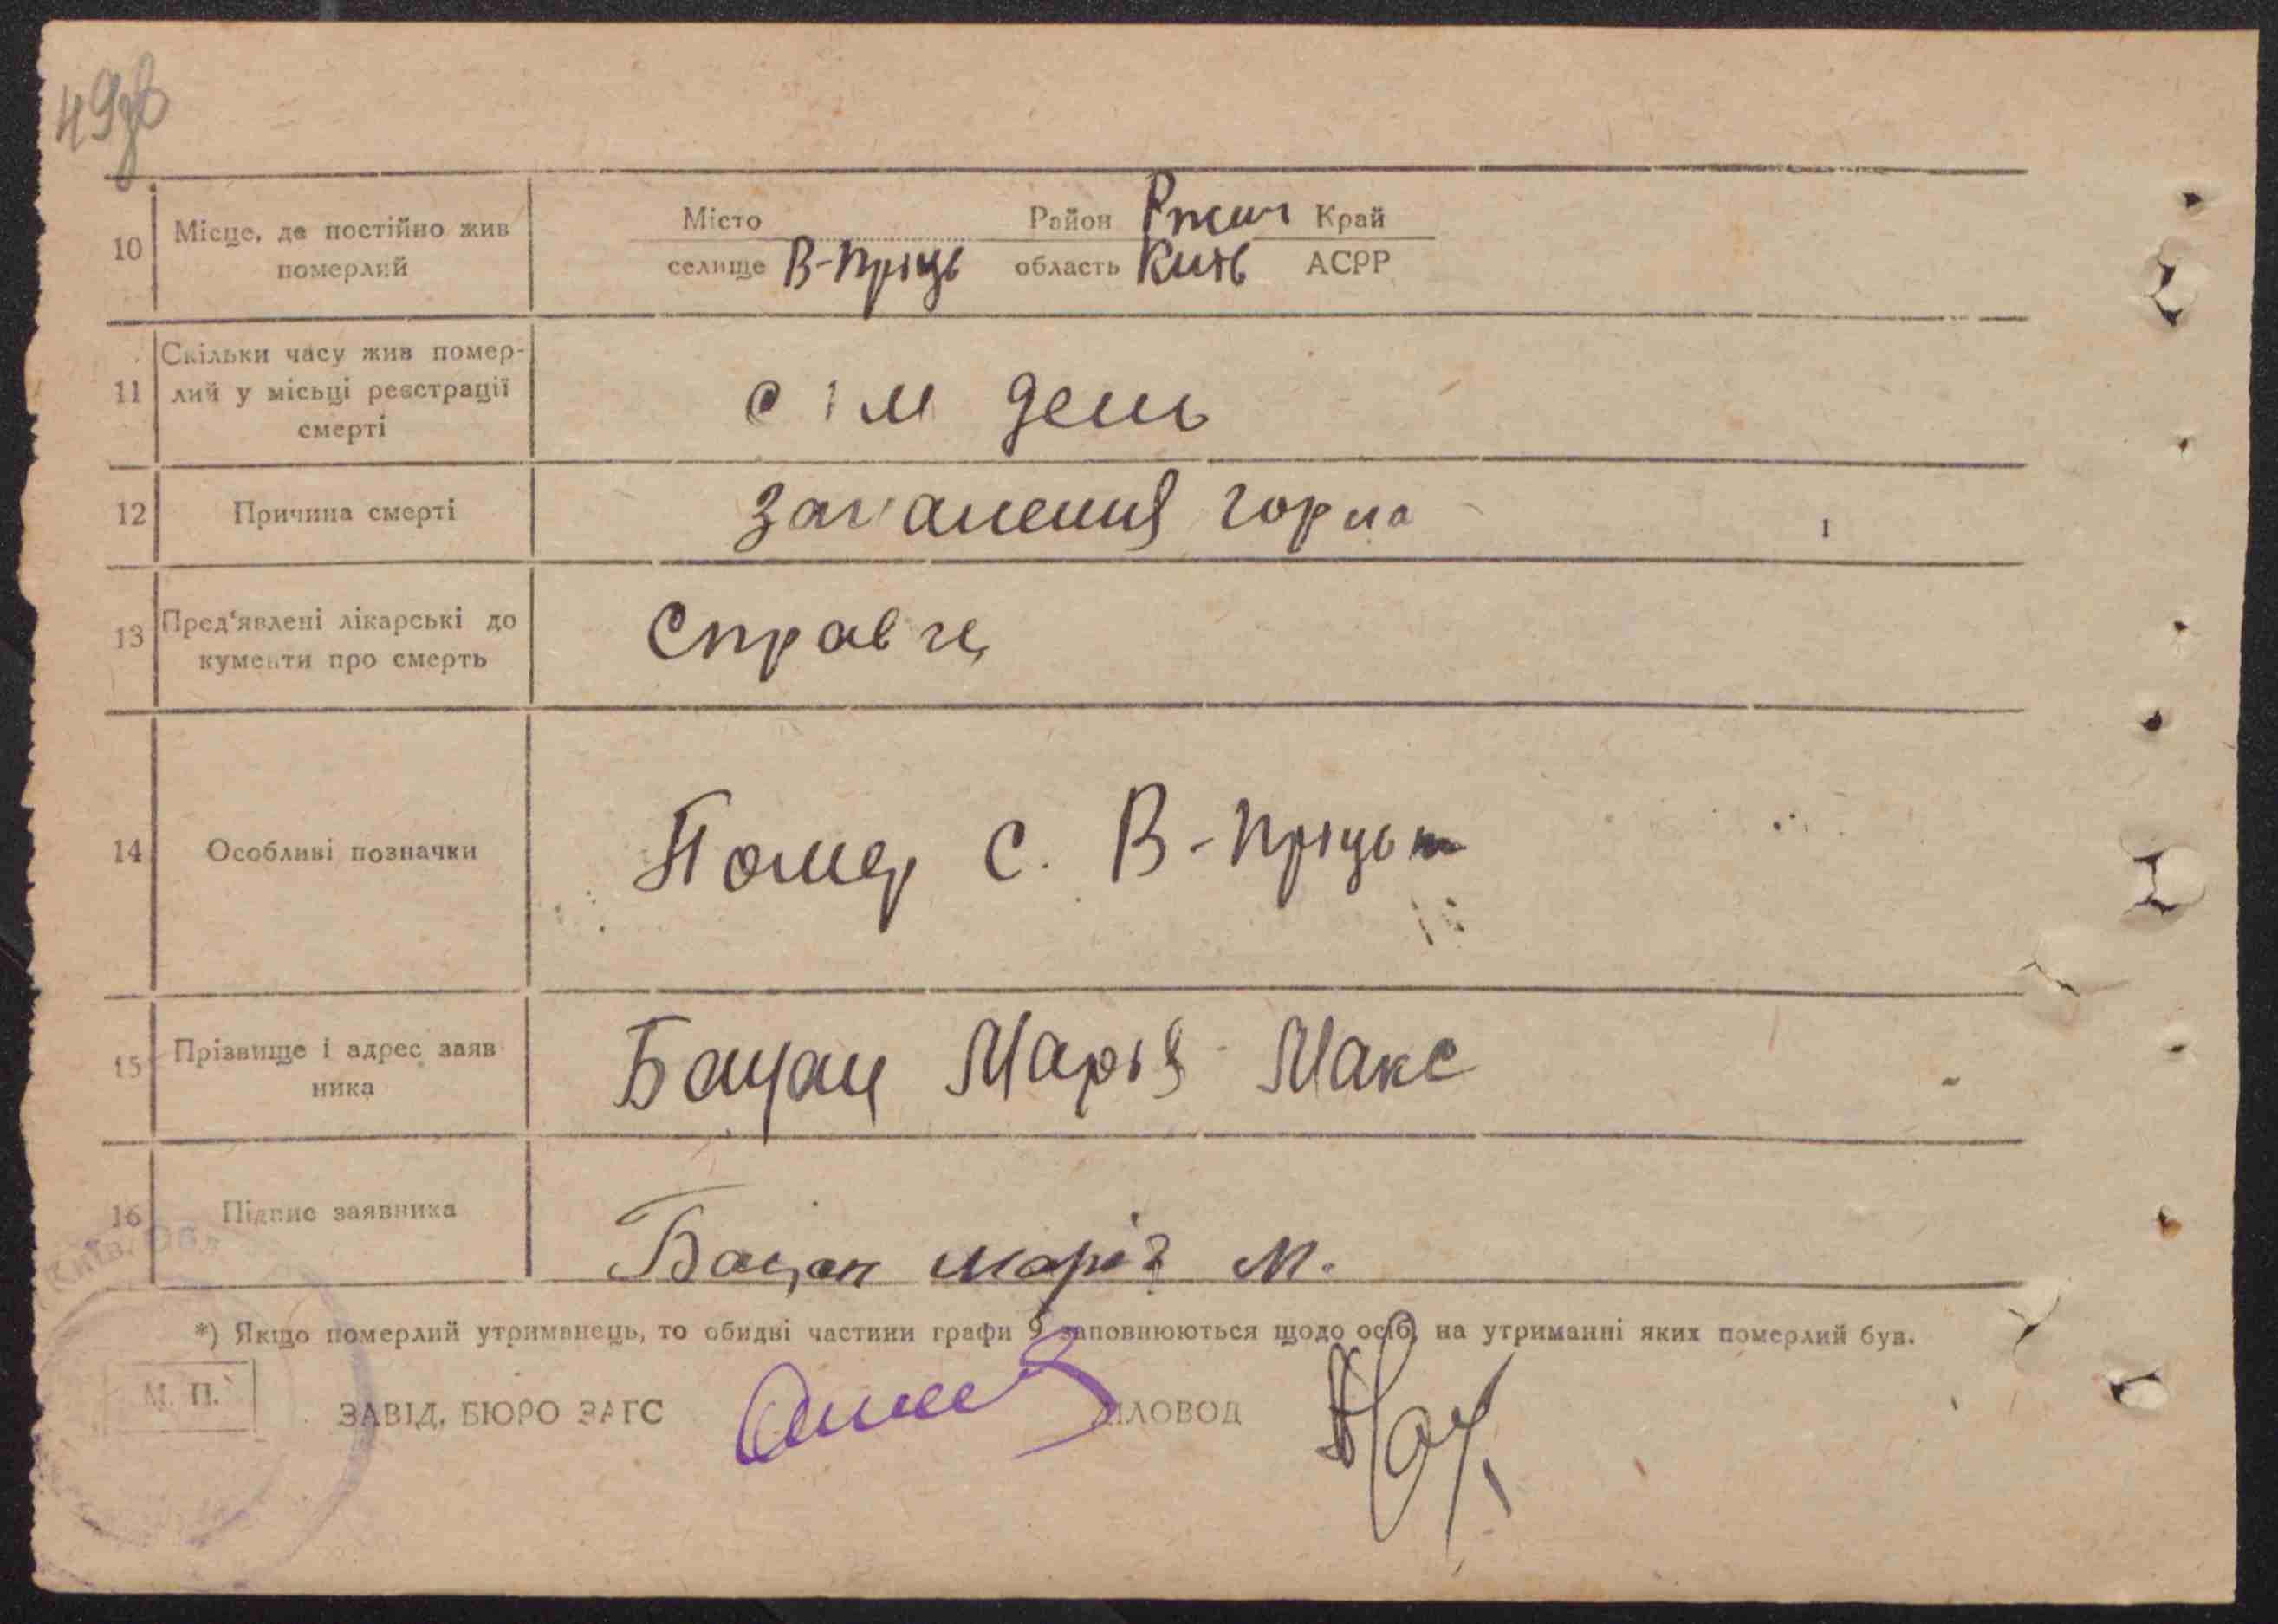 49зв
10 Місце, де постійно жив померлий
Місто Район Ржищ Край
селище В-Пріць область Київ АСРР
11 Скільки часу жив помер-
лий у місьці реєстрації
смерті
сім день
12 Причина смерті
запаленния горла
13 Пред'явлені лікарські до
кументи про смерть
Справка
14 Особливі позначки
Помер с. В-Пріцьк
15 Прізвище і адрес заяв
ника
Бацан Марія Макс
16 Підпис заявника
Бацан марія М.
Київ. Обл
*) Якщо померлий утриманець, то обидві частини графи 9 заповнюються щодо осіб, на утриманні яких померлий був.
М. П.
ЗАВІД. БЮРО ЗАГС ДІЛОВОД